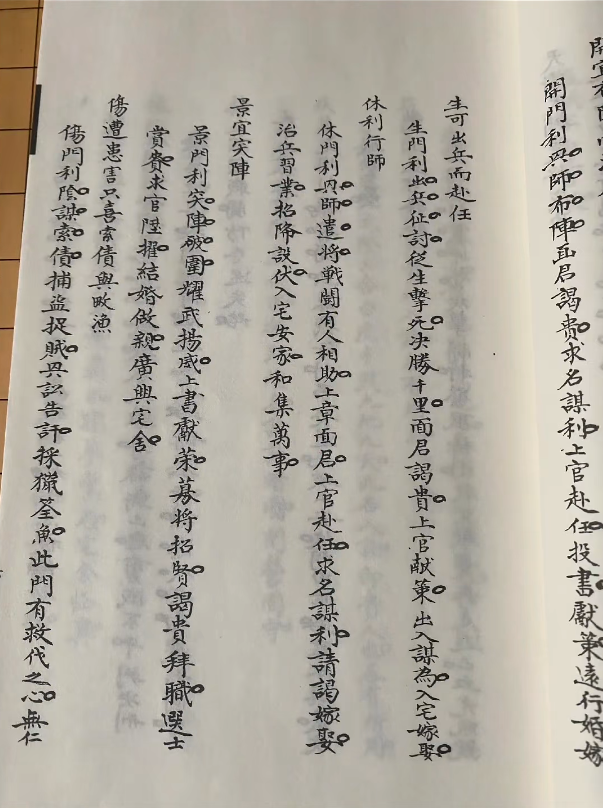 開門利興師布陣面君謁貴求名謀利上官赴任投書獻策遠行婚嫁
生可出兵而赴任
生門利出兵征討從生擊死決勝千里面君謁貴上官献策出入謀為入宅嫁娶
休利行師
休門利興師遣將戰鬪有人相助上章面君上官赴任求名謀利請謁嫁娶
治兵習業招降設伏入宅安家和集萬事
景宜突陣
景門利突陣破圍耀武揚威上書獻策募將招賢謁貴拜職選士
賞賚求官陞擢結婚做親廣興宅舍
傷遭患害只喜索債與畋漁
傷門利陰謀索債捕盗捉賊興訟告訐採獵筌魚此門有救代之心無仁